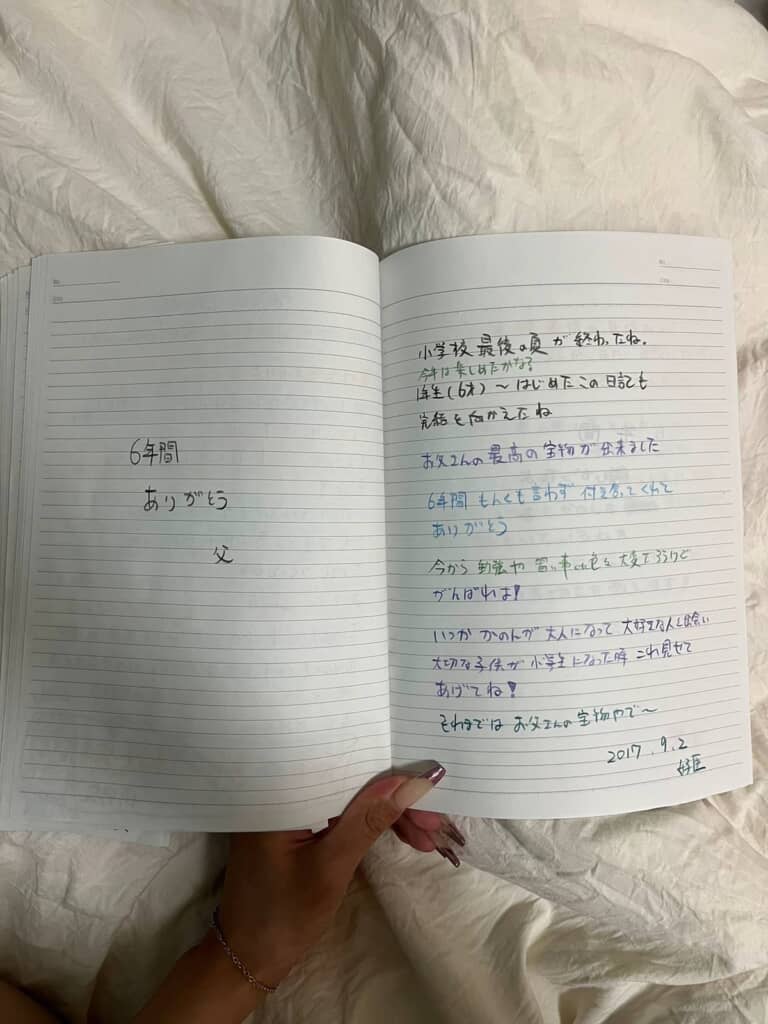 6年間
ありがとう
父
小学校 最後の夏が終わったね。
今年は楽しめたかな?
1年生(6才)〜はじめたこの日記も
完結を向かえたね
お父さんの最高の宝物が出来ました
6年間 もんくも言わず 付き合ってくれて
ありがとう
今から 勉強や 習い事 大変やろうけど
がんばれよ!
いつか かのんが 大人になって 大好きな人と出会い
大切な子供が 小学生になった時 これ見せて
あげてね!
それまでは お父さんの宝物やで〜
2017.9.2